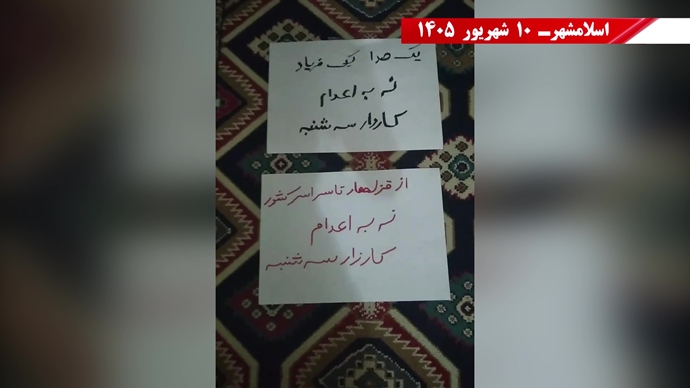 اسلامشهر – ۱۰ شهریور ۱۴۰۵
یک صدا یک فریاد
نه به اعدام
کاردار سه شنبه
از قزلحصار تا سراسر کشور
نه به اعدام
کارزار سه شنبه